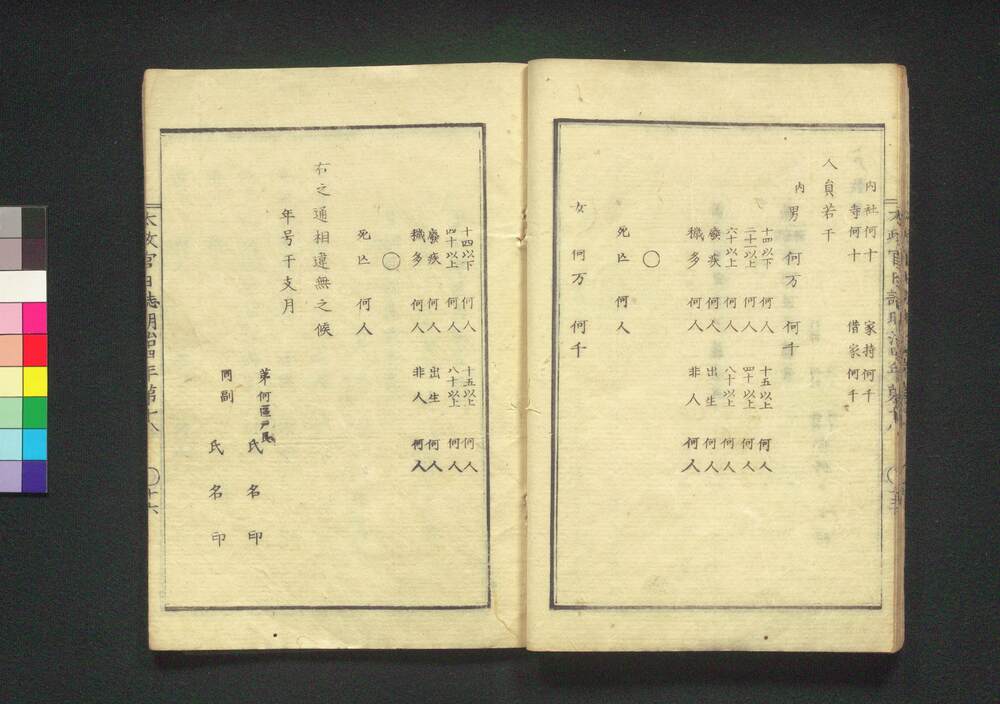 内社何十 家持何千
寺何十 借家何千
人員若干
内男何万何千
十四以下何人 十五以上何人
二十一以上何人 四十以上何人
六十以上何人 八十以上何人
癈疾何人 出生何人
穢多何人 非人何人
〇
死亡何人
女何万何千
十四以下何人 十五以上何人
四十以上何人 八十以上何人
癈疾何人 出生何人
穢多何人 非人何人
〇
死亡何人
右之通相違無之候
年号干支月
第何區戸長 氏名印
同副 氏名印
太政官日誌明治四年第十八 〇 十六